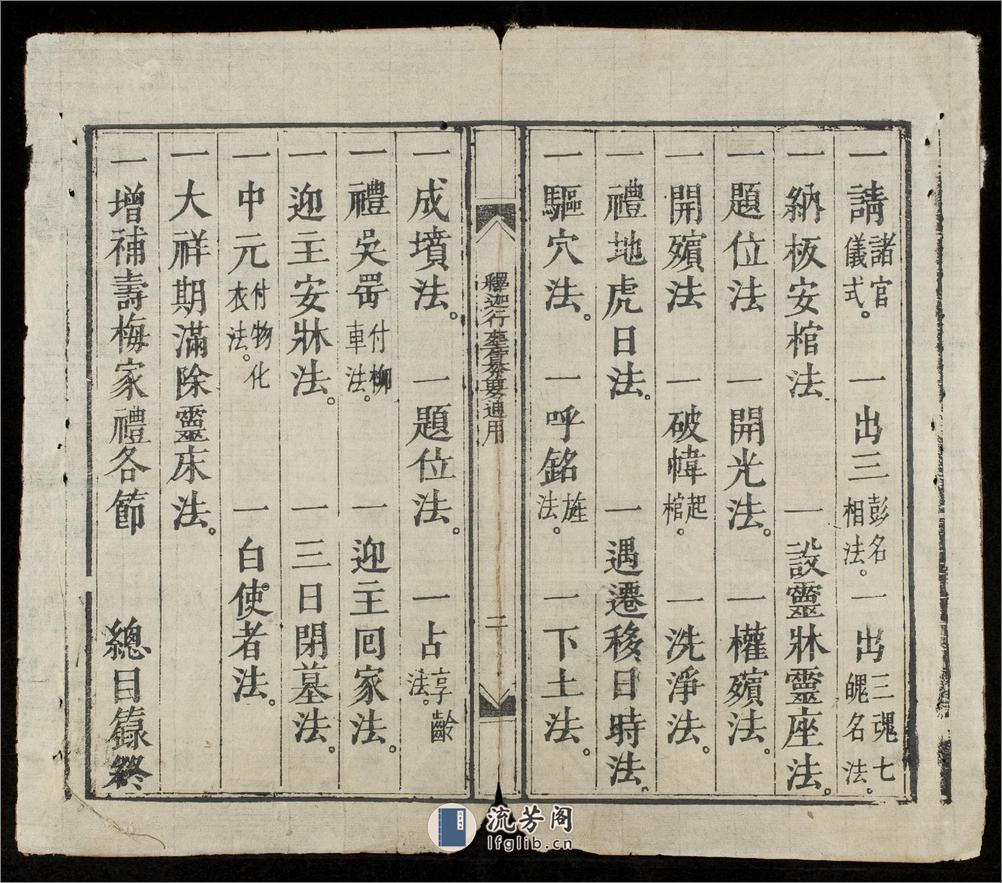 一請諸官儀式。 一出三彭名相法。 一出三魂七魄名法。
一納板安棺法 一設靈牀靈座法。
一題位法 一開光法。 一權殯法。
一開殯法 一破幃起棺 一洗淨法。
一禮地虎日法。 一遇遷移日時法。
一驅穴法。 一呼銘旌法。 一下土法。
釋迦行 要通用
二
一成墳法。 一題位法。 一占享齡法。
一禮 付柳車法。 一迎主回家法。
一迎主安牀法。 一三日閉墓法。
一中元付物化衣法。 一白使者法。
一大祥期滿除靈床法。
一增補壽梅家禮各節 總目籙終
流芳阁
lfglib.cn